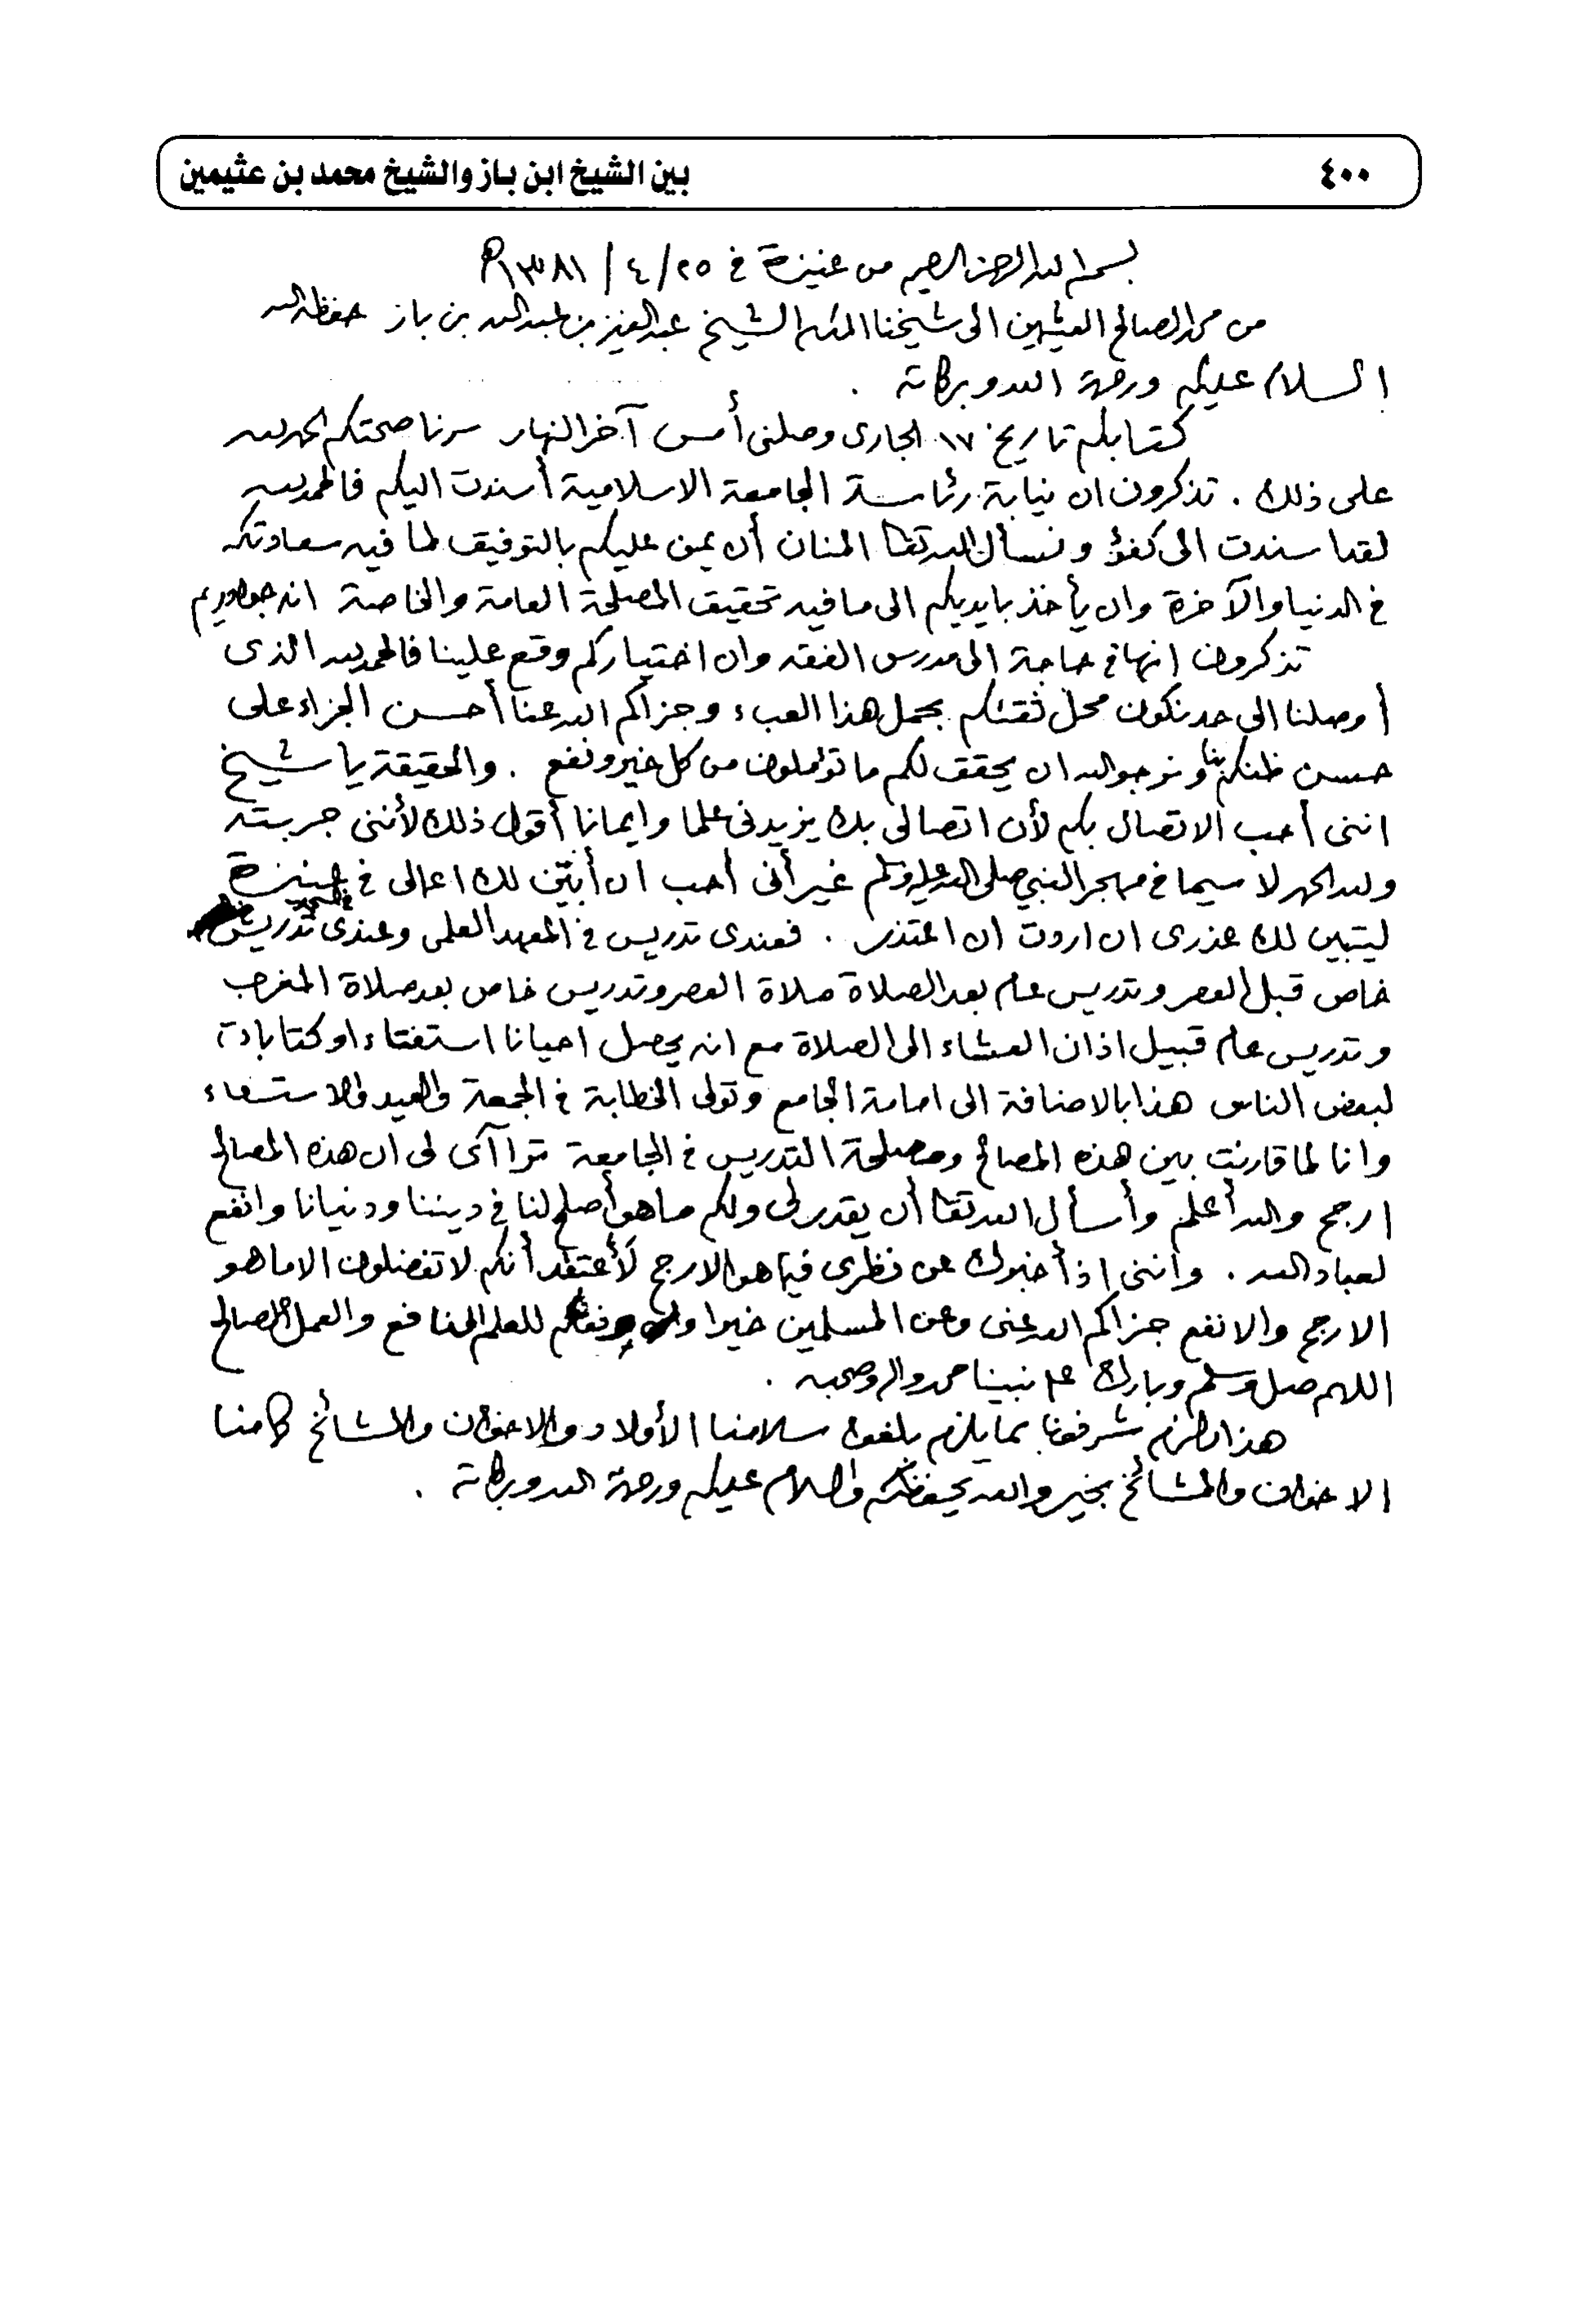 ٤٠٠
بين الشيخ ابن باز والشيخ محمد بن عثيمين
بسم الله الرحمن الرحيم من عنيزة في ٢٥/ ٤ / ١٣٨١هـ
من محمد الصالح العثيمين الى شيخنا المكرم الشيخ عبد العزيز بن عبد الله بن باز حفظه الله
السلام عليكم ورحمة الله وبركاته .
كتابكم تاريخ ١٧ الجاري وصلني أمس آخر النهار سرنا صحتكم الحمد لله
على ذلك . تذكرون ان نيابة رئاسة الجامعة الاسلامية أسندت اليكم فالحمد لله
لقد اسندت الى كفؤ ونسأل الله تعالى المنان أن يمن عليكم بالتوفيق لما فيه سعادتكم
في الدنيا والآخرة وان يأخذ بايديكم الى ما فيه تحقيق المصلحة العامة والخاصة انه جواد كريم
تذكرون انها في حاجة الى مدرس الفقه وان اختياركم وقع علينا فالحمد لله الذي
أوصلنا الى حد نكون محل ثقتكم بحمل هذا العبء وجزاكم الله عنا أحسن الجزاء على
حسن ظنكم بنا ونرجو الله ان يحقق لكم ما تؤملون من كل خير ونفع . والحقيقة يا شيخ
انني أحب الاتصال بكم لأن اتصالي بك يزيدني علما وايمانا أقول ذلك لأنني جربته
ولله الحمد لا سيما في مهجر النبي صلى الله عليه وسلم غير أني أحب ان أبين لك اعمالي في عنيزة
ليتبين لك عذري ان اردت ان اعتذر . فعندي تدريس في المعهد العلمي وعندي تدريس في المسجد
خاص قبل العصر وتدريس عام بعد الصلاة صلاة العصر وتدريس خاص بعد صلاة المغرب
وتدريس عام قبيل اذان العشاء الى الصلاة مع انه يحصل احيانا استفتاء او كتابات
لبعض الناس هذا بالاضافة الى امامة الجامع وتولي الخطابة في الجمعة والعيد والاستسقاء
وانا لما قارنت بين هذه المصالح ومصلحة التدريس في الجامعة تراآى لي ان هذه المصالح
ارجح والله أعلم وأسأل الله تعالى أن يقدر لي ولكم ما هو أصلح لنا في ديننا ودنيانا وانفع
لعباد الله . وانني اذ أخبرك عن نظري فيما هو الارجح لأعتقد أنكم لا تفضلون الا ما هو
الارجح والانفع جزاكم الله عني وعن المسلمين خيرا ووفقكم للعلم النافع والعمل الصالح
اللهم صل وسلم وبارك على نبينا محمد وآله وصحبه .
هذا ما لزم شرفونا بما يلزم بلغوا سلامنا الأولاد والاخوان والمشائخ كما منا
الاخوان والمشائخ بخير والله يحفظكم والسلام عليكم ورحمة الله وبركاته .